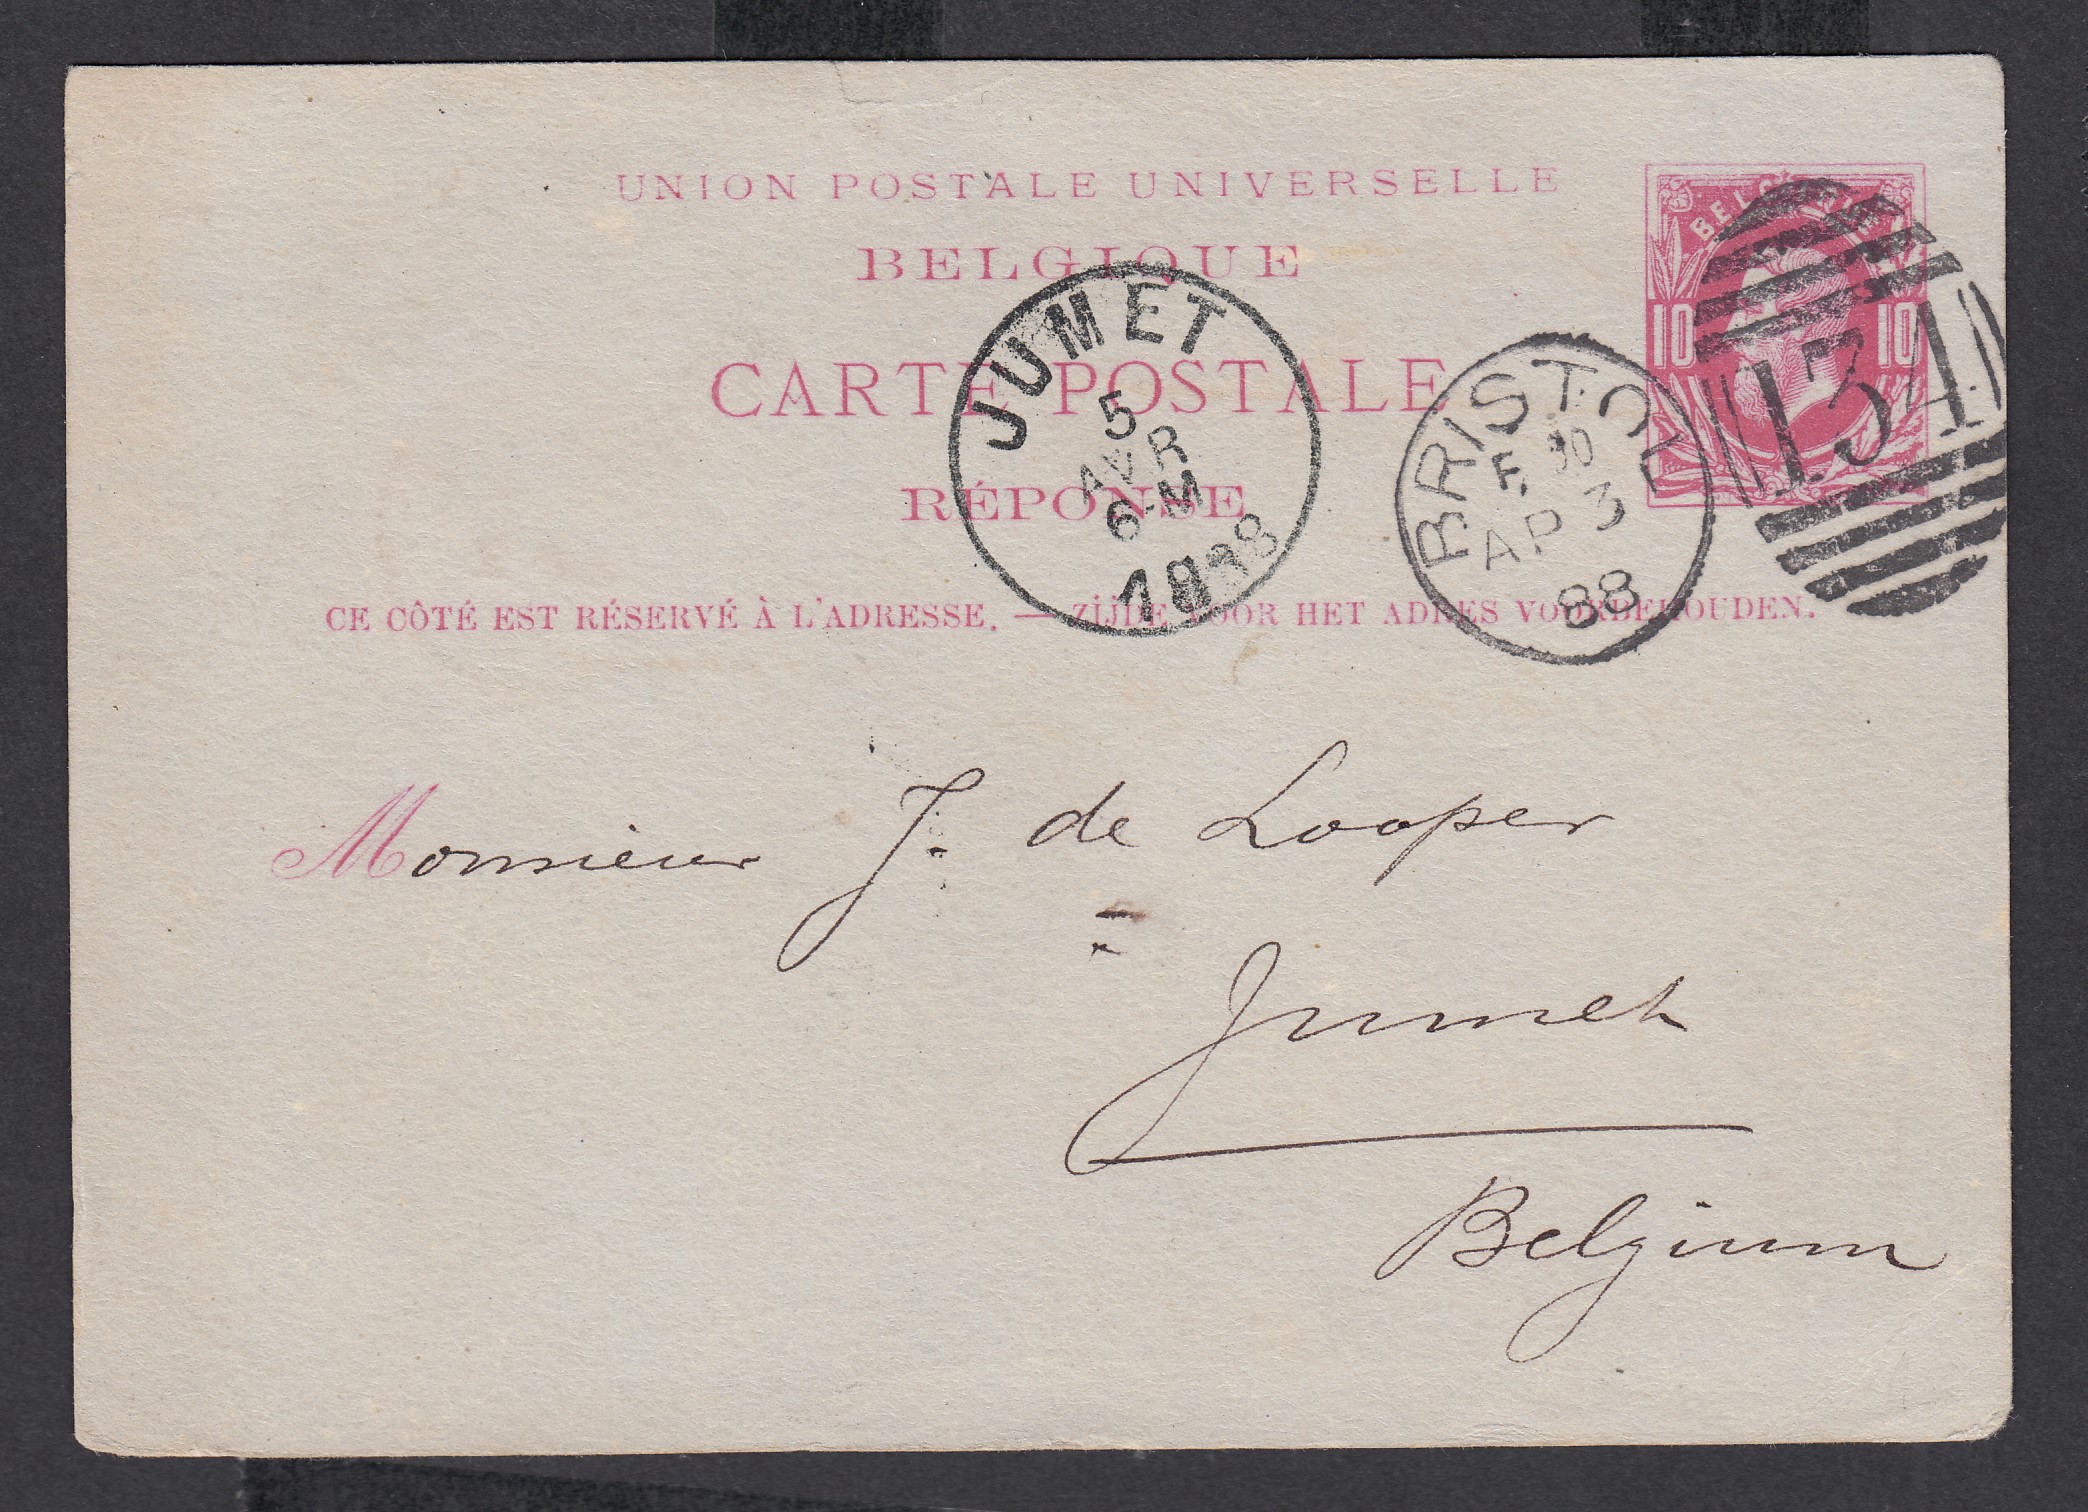 UNION POSTALE UNIVERSELLE
BELGIQUE
CARTE POSTALE
RÉPONSE
CE CÔTÉ EST RÉSERVÉ À L'ADRESSE. — ZIJDE VOOR HET ADRES VOORBEHOUDEN.
BELGIQUE
10 10
134
BRISTOL
F. 30
AP 3
88
JUMET
5
AVR
6-M
1888
Monsieur J. de Looper
Jumet
Belgium